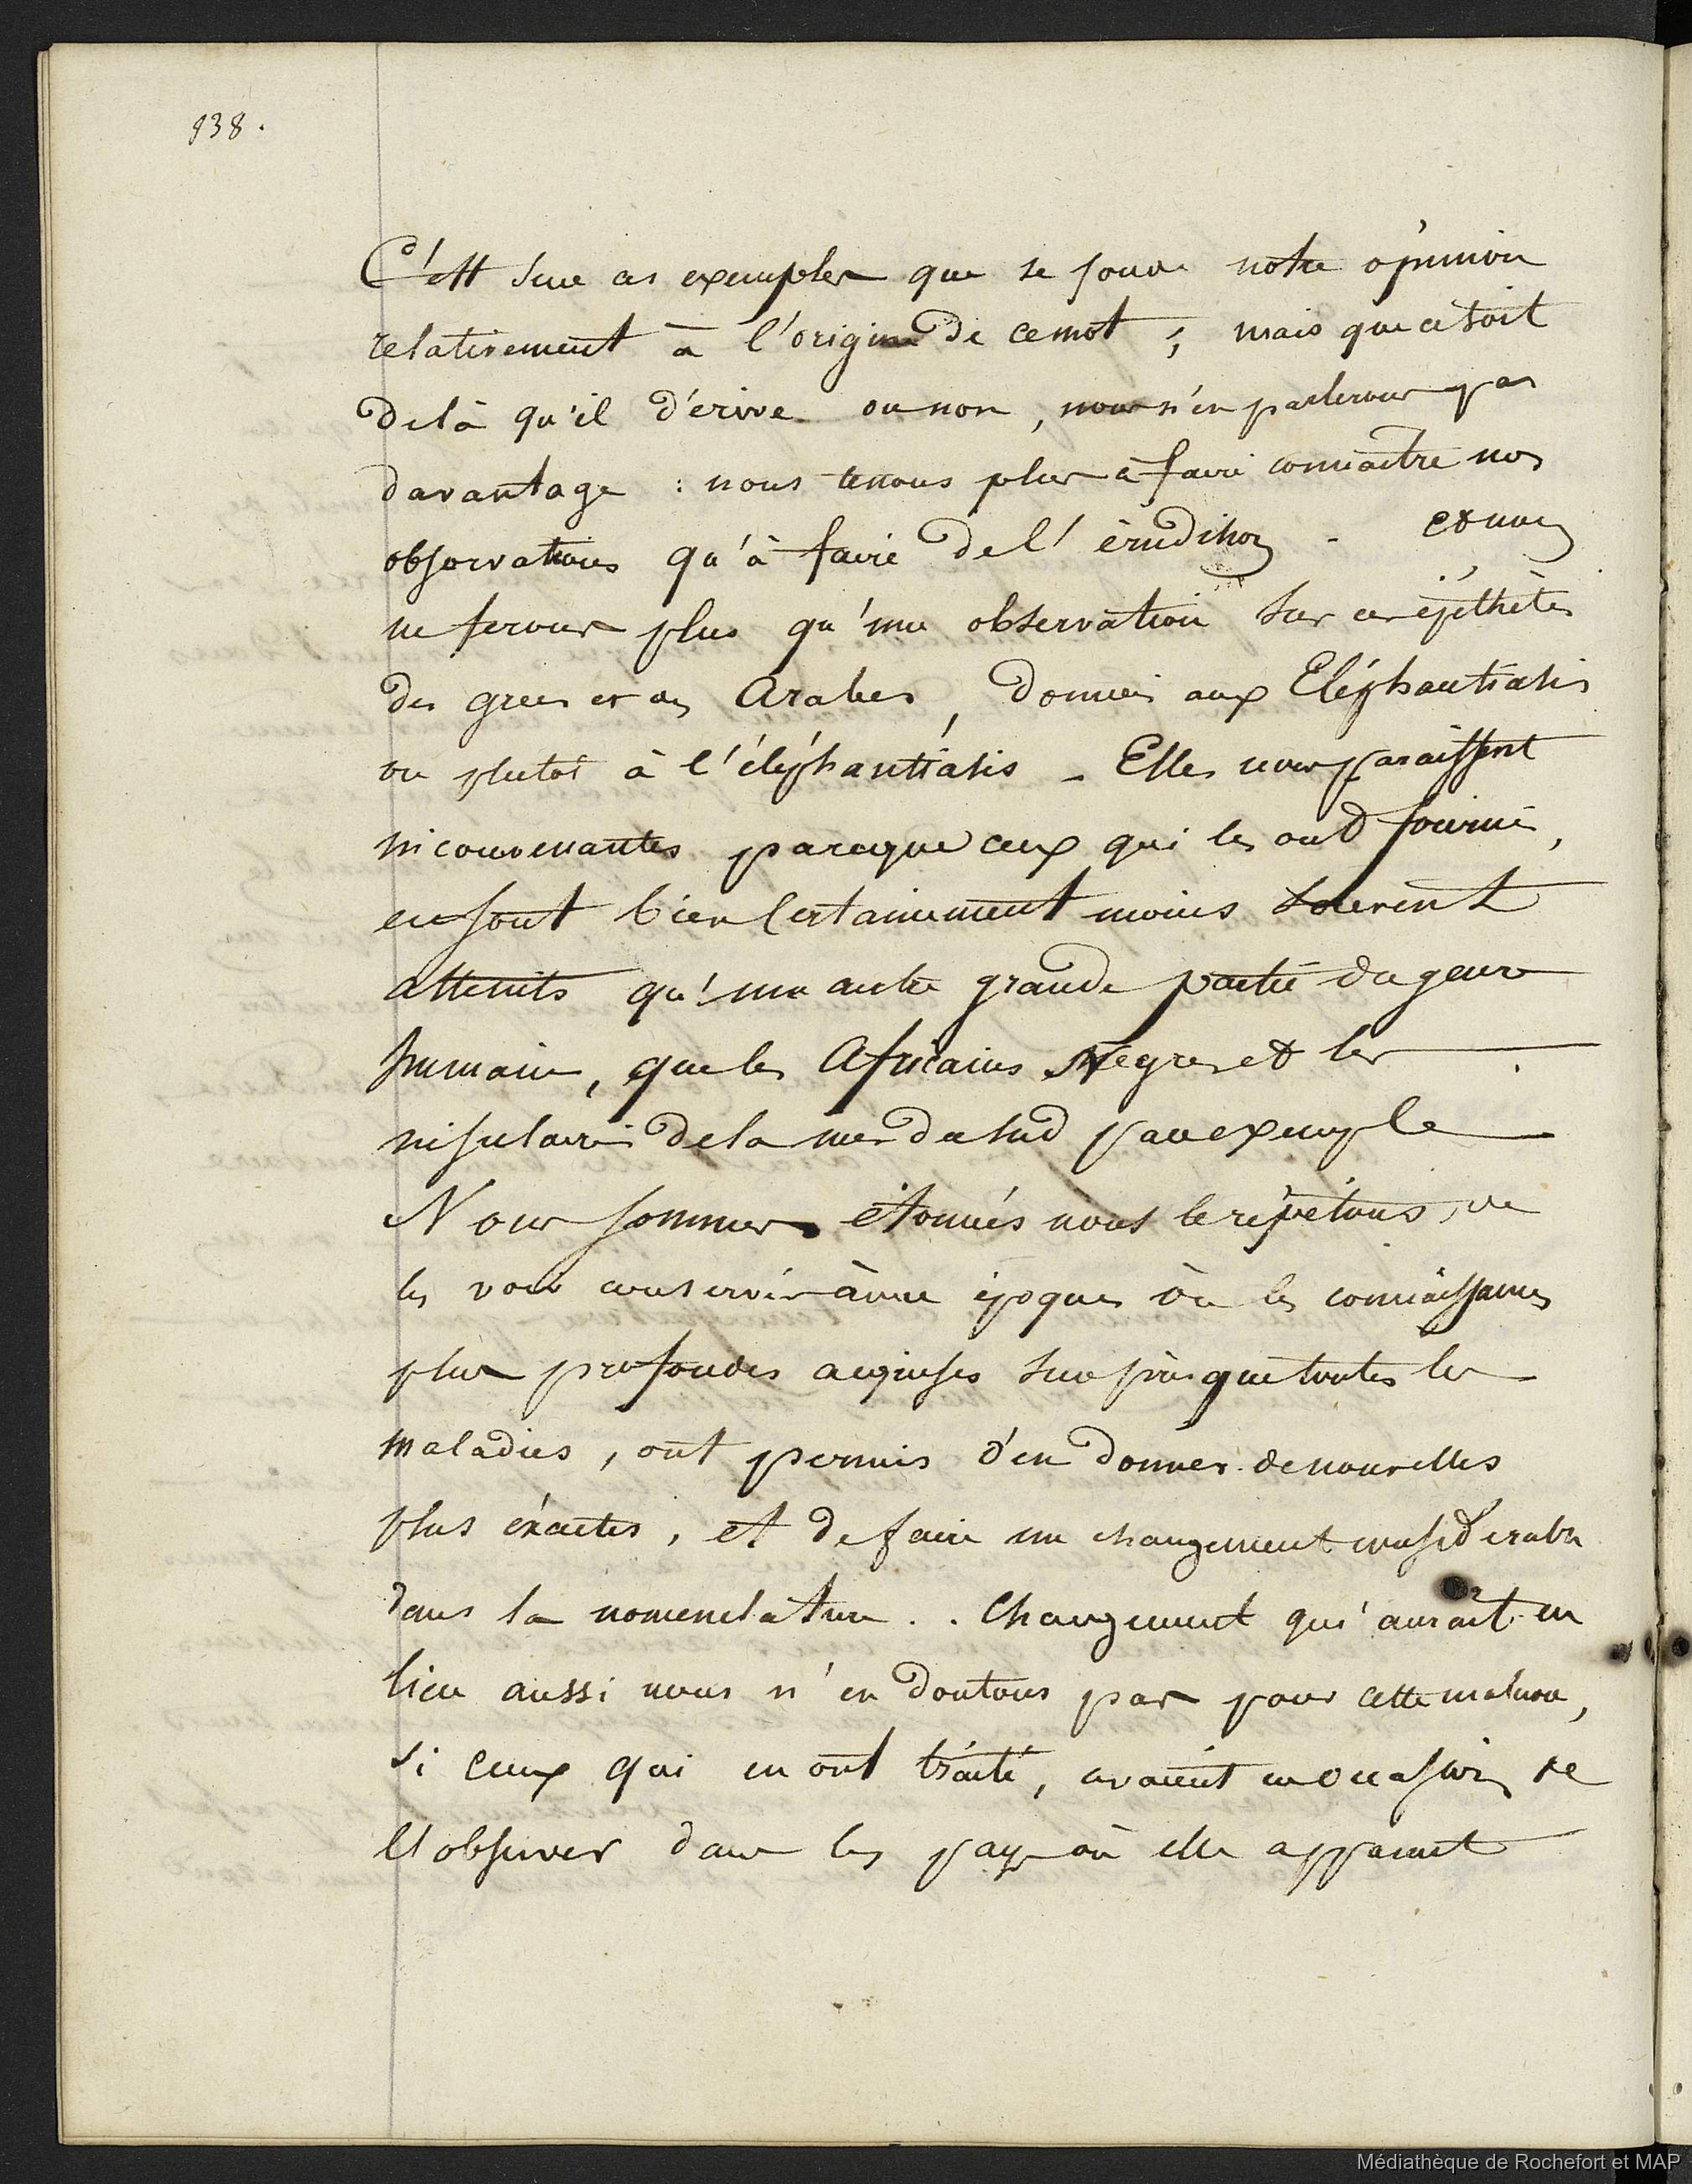 938.
C'est sur ces exemples que se fonde notre opinion
relativement à l'origine de ce mot ; mais que ce soit
de là qu'il dérive ou non, nous n'en parlerons pas
davantage : nous tenons plus à faire connaitre nos
observations qu'à faire de l'érudition - et nous
ne ferons plus qu'une observation sur ces épithètes
des grecs et des Arabes, données aux Eléphantiasis
ou plutot à l'éléphantiasis - Elles nous paraissent
inconvenantes parceque ceux qui les ont fournies,
en sont bien certainement moins souvent
atteints qu'une autre grande partie du genre
humain, que les Africains Nègres et les
insulaires de la mer du sud par exemple
Nous sommes étonnés nous le répétons, de
les voir conserver à une époque où les connaissances
plus profondes acquises sur presque toutes les
maladies, ont permis d'en donner de nouvelles
plus éxactes, et de faire un changement considérable
dans la nomenclature . . Changement qui aurait eu
lieu aussi nous n'en doutons pas pour cette maladie,
si ceux qui en ont traité, avaient eu occasion de
l'observer dans les pays où elle apparait
Médiathèque de Rochefort et MAP